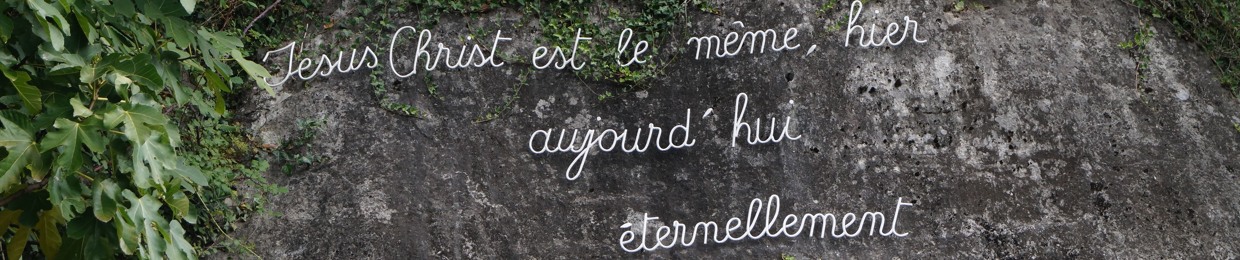 Jésus Christ est le même, hier
aujourd'hui
éternellement